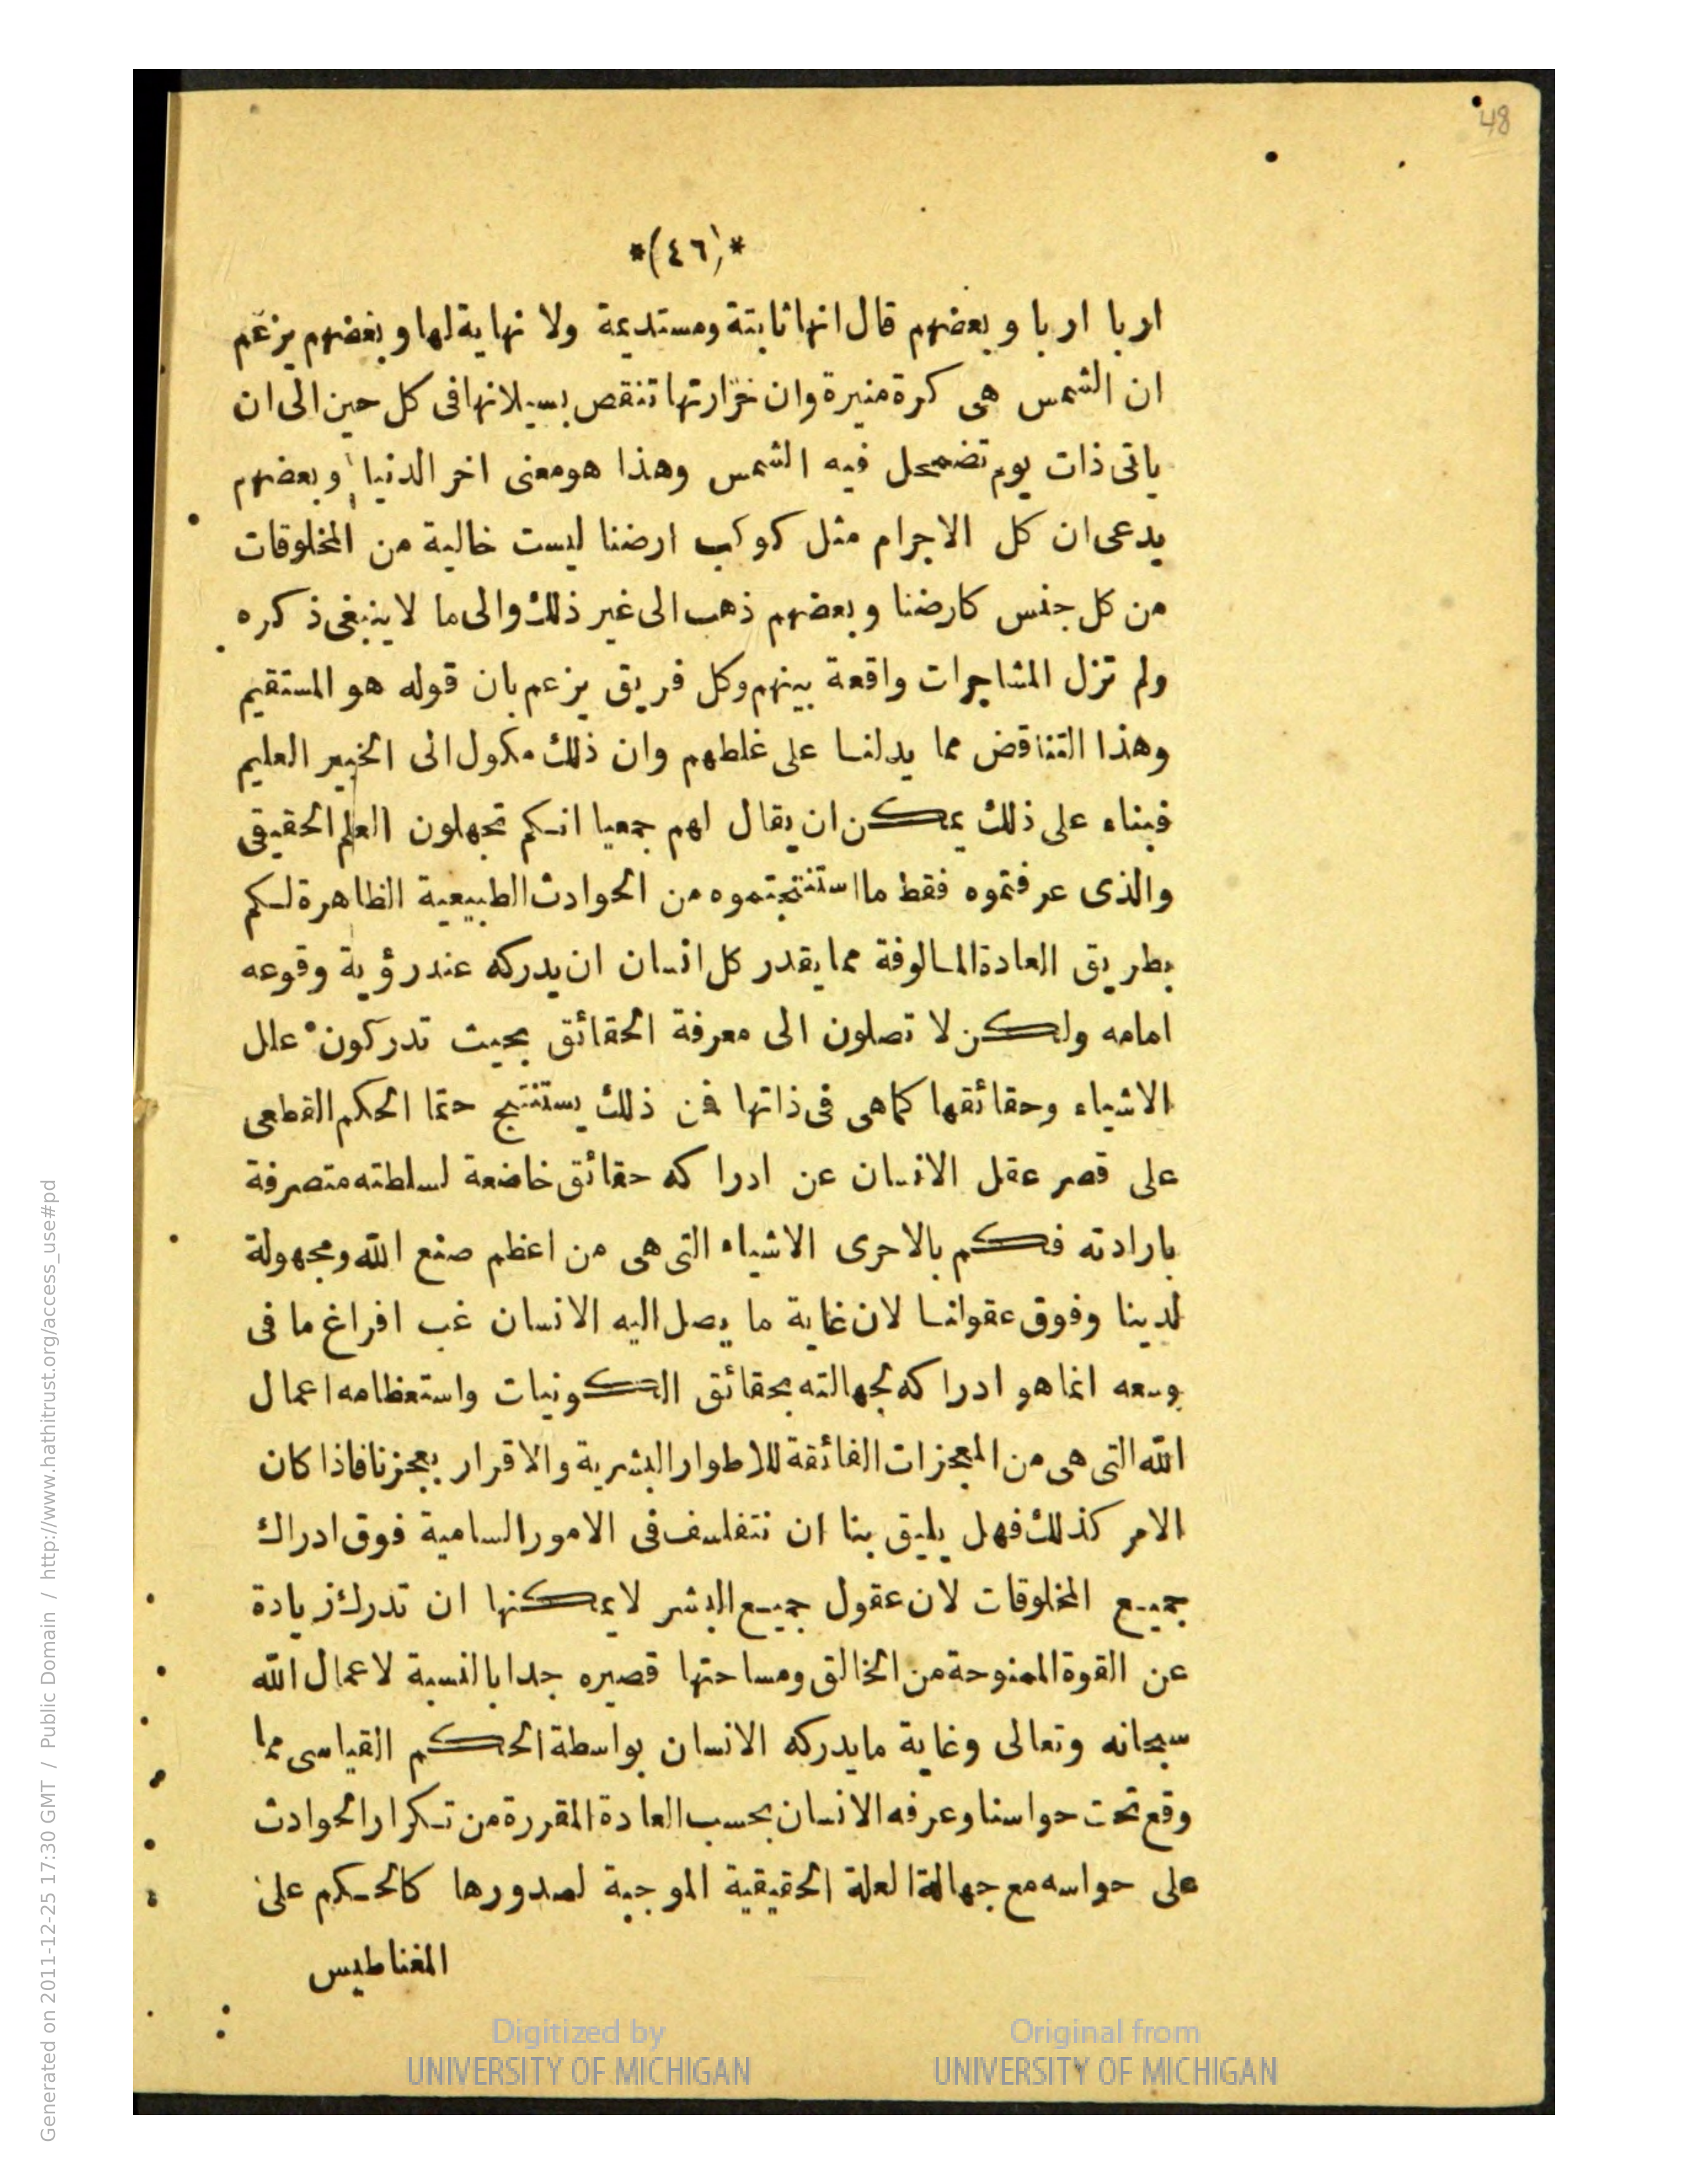 48
*(٤٦)*
اربا اربا وبعضهم قال انها ثابتة ومستديمة ولا نهاية لها وبعضهم يزعم
ان الشمس هى كرة منيرة وان غزارتها تنقص بسيلانها فى كل حين الى ان
ياتى ذات يوم تضمحل فيه الشمس وهذا هو معنى اخر الدنيا وبعضهم
يدعى ان كل الاجرام مثل كوكب ارضنا ليست خالية من المخلوقات
من كل جنس كارضنا وبعضهم ذهب الى غير ذلك والى ما لا ينبغى ذكره
ولم تزل المشاجرات واقعة بينهم وكل فريق يزعم بان قوله هو المستقيم
وهذا التناقض مما يدلنا على غلطهم وان ذلك مكول الى الخبير العليم
فبناء على ذلك يمكن ان يقال لهم جمعيا انكم تجهلون العلم الحقيقى
والذى عرفتموه فقط ما استنتجتموه من الحوادث الطبيعية الظاهرة لكم
بطريق العادة المالوفة مما يقدر كل انسان ان يدركه عند رؤية وقوعه
امامه ولكن لا تصلون الى معرفة الحقائق بحيث تدركون علل
الاشياء وحقائقها كما هى فى ذاتها فمن ذلك يستنتج حتما الحكم القطعى
على قصر عقل الانسان عن ادراكه حقائق خاضعة لسلطته متصرفة
بارادته فكم بالاحرى الاشياء التى هى من اعظم صنع الله ومجهولة
لدينا وفوق عقولنا لان غاية ما يصل اليه الانسان غب افراغ ما فى
وسعه انما هو ادراكه لجهالته بحقائق الكونيات واستعظامه اعمال
الله التى هى من المعجزات الفائقة للاطوار البشرية والاقرار بعجزنا فاذا كان
الامر كذلك فهل يليق بنا ان نتفلسف فى الامور السامية فوق ادراك
جميع المخلوقات لان عقول جميع البشر لا يمكنها ان تدرك زيادة
عن القوة الممنوحة من الخالق ومساحتها قصيره جدا بالنسبة لاعمال الله
سبحانه وتعالى وغاية ما يدركه الانسان بواسطة الحكم القياسى مما
وقع تحت حواسنا وعرفه الانسان بحسب العادة المقررة من تكرار الحوادث
على حواسه مع جهالة العلة الحقيقية الموجبة لصدورها كالحكم على
المغناطيس
Digitized by
UNIVERSITY OF MICHIGAN
Original from
UNIVERSITY OF MICHIGAN
Generated on 2011-12-25 17:30 GMT / Public Domain / http://www.hathitrust.org/access_use#pd